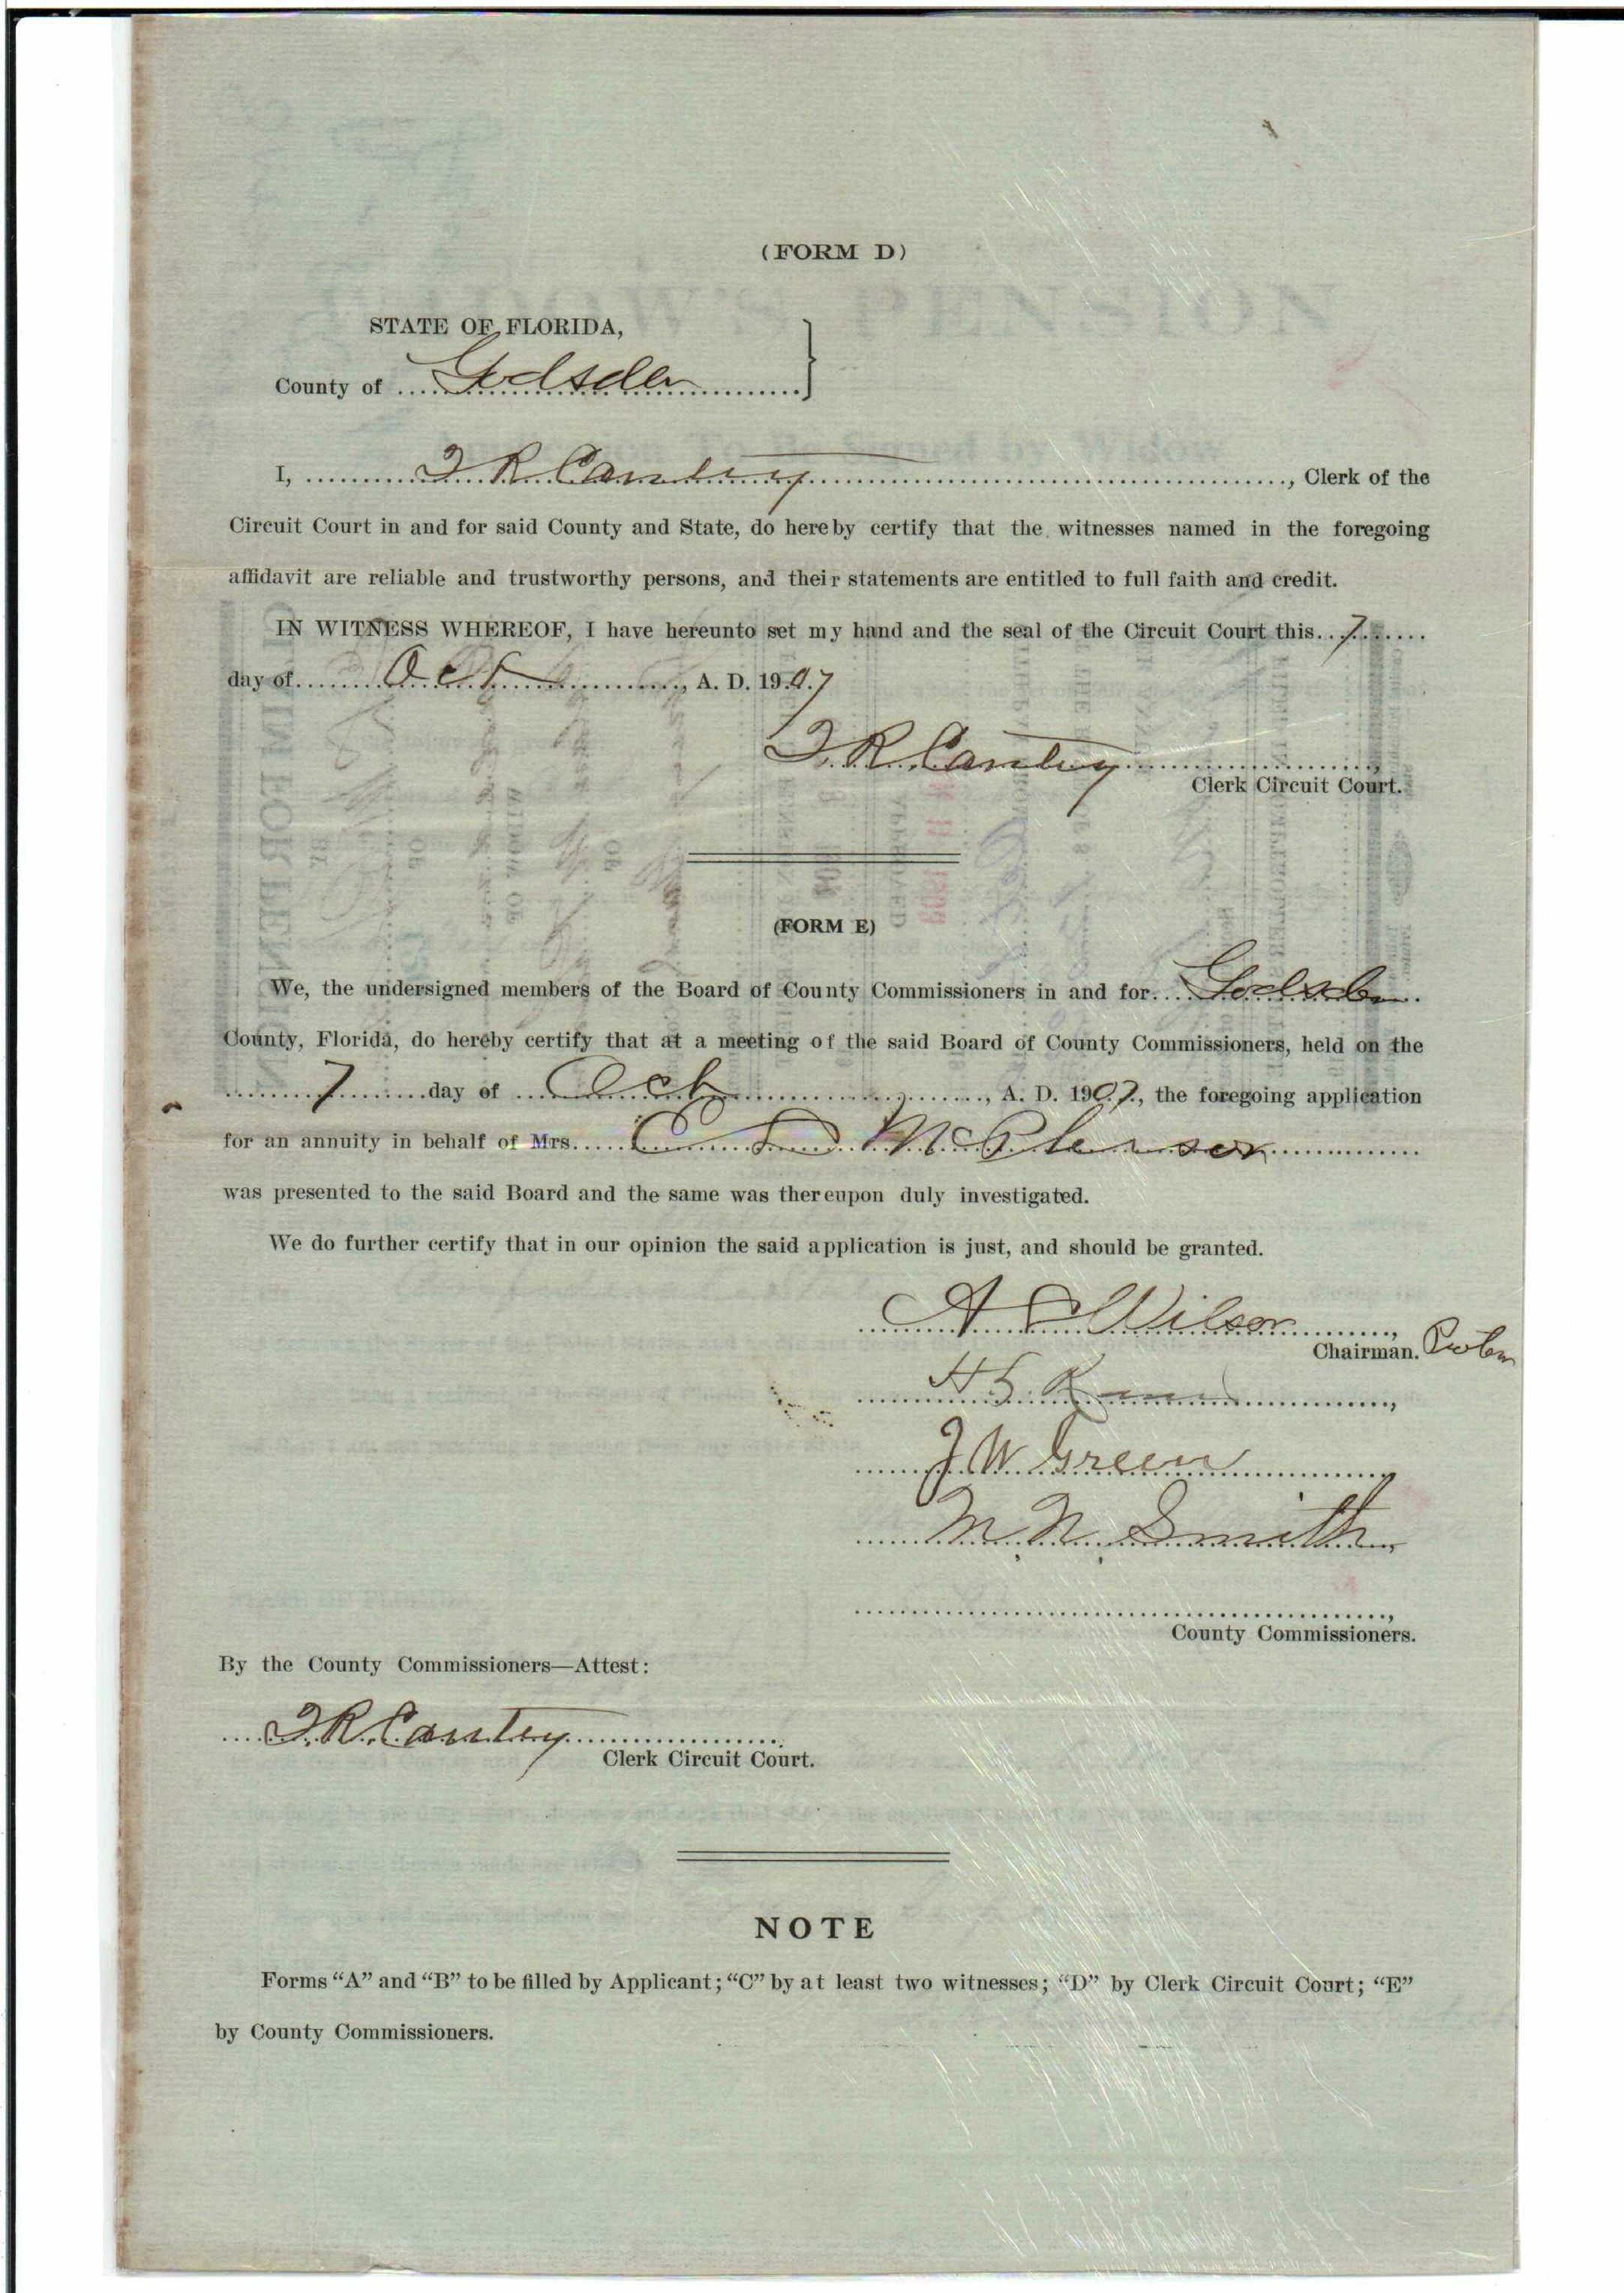 (FORM D)
STATE OF FLORIDA,
County of Gadsden
I, T R Cantey, Clerk of the
Circuit Court in and for said County and State, do hereby certify that the witnesses named in the foregoing
affidavit are reliable and trustworthy persons, and their statements are entitled to full faith and credit.
IN WITNESS WHEREOF, I have hereunto set my hand and the seal of the Circuit Court this 7
day of Oct, A. D. 1907
T R Cantey
Clerk Circuit Court.
(FORM E)
We, the undersigned members of the Board of County Commissioners in and for Gadsden
County, Florida, do hereby certify that at a meeting of the said Board of County Commissioners, held on the
7 day of Oct, A. D. 1907, the foregoing application
for an annuity in behalf of Mrs. McPherson
was presented to the said Board and the same was thereupon duly investigated.
We do further certify that in our opinion the said application is just, and should be granted.
Wilson
Chairman. Protem
H S
J W Green
M. N. Smith
County Commissioners.
By the County Commissioners—Attest:
T R Cantey
Clerk Circuit Court.
NOTE
Forms "A" and "B" to be filled by Applicant; "C" by at least two witnesses; "D" by Clerk Circuit Court; "E"
by County Commissioners.